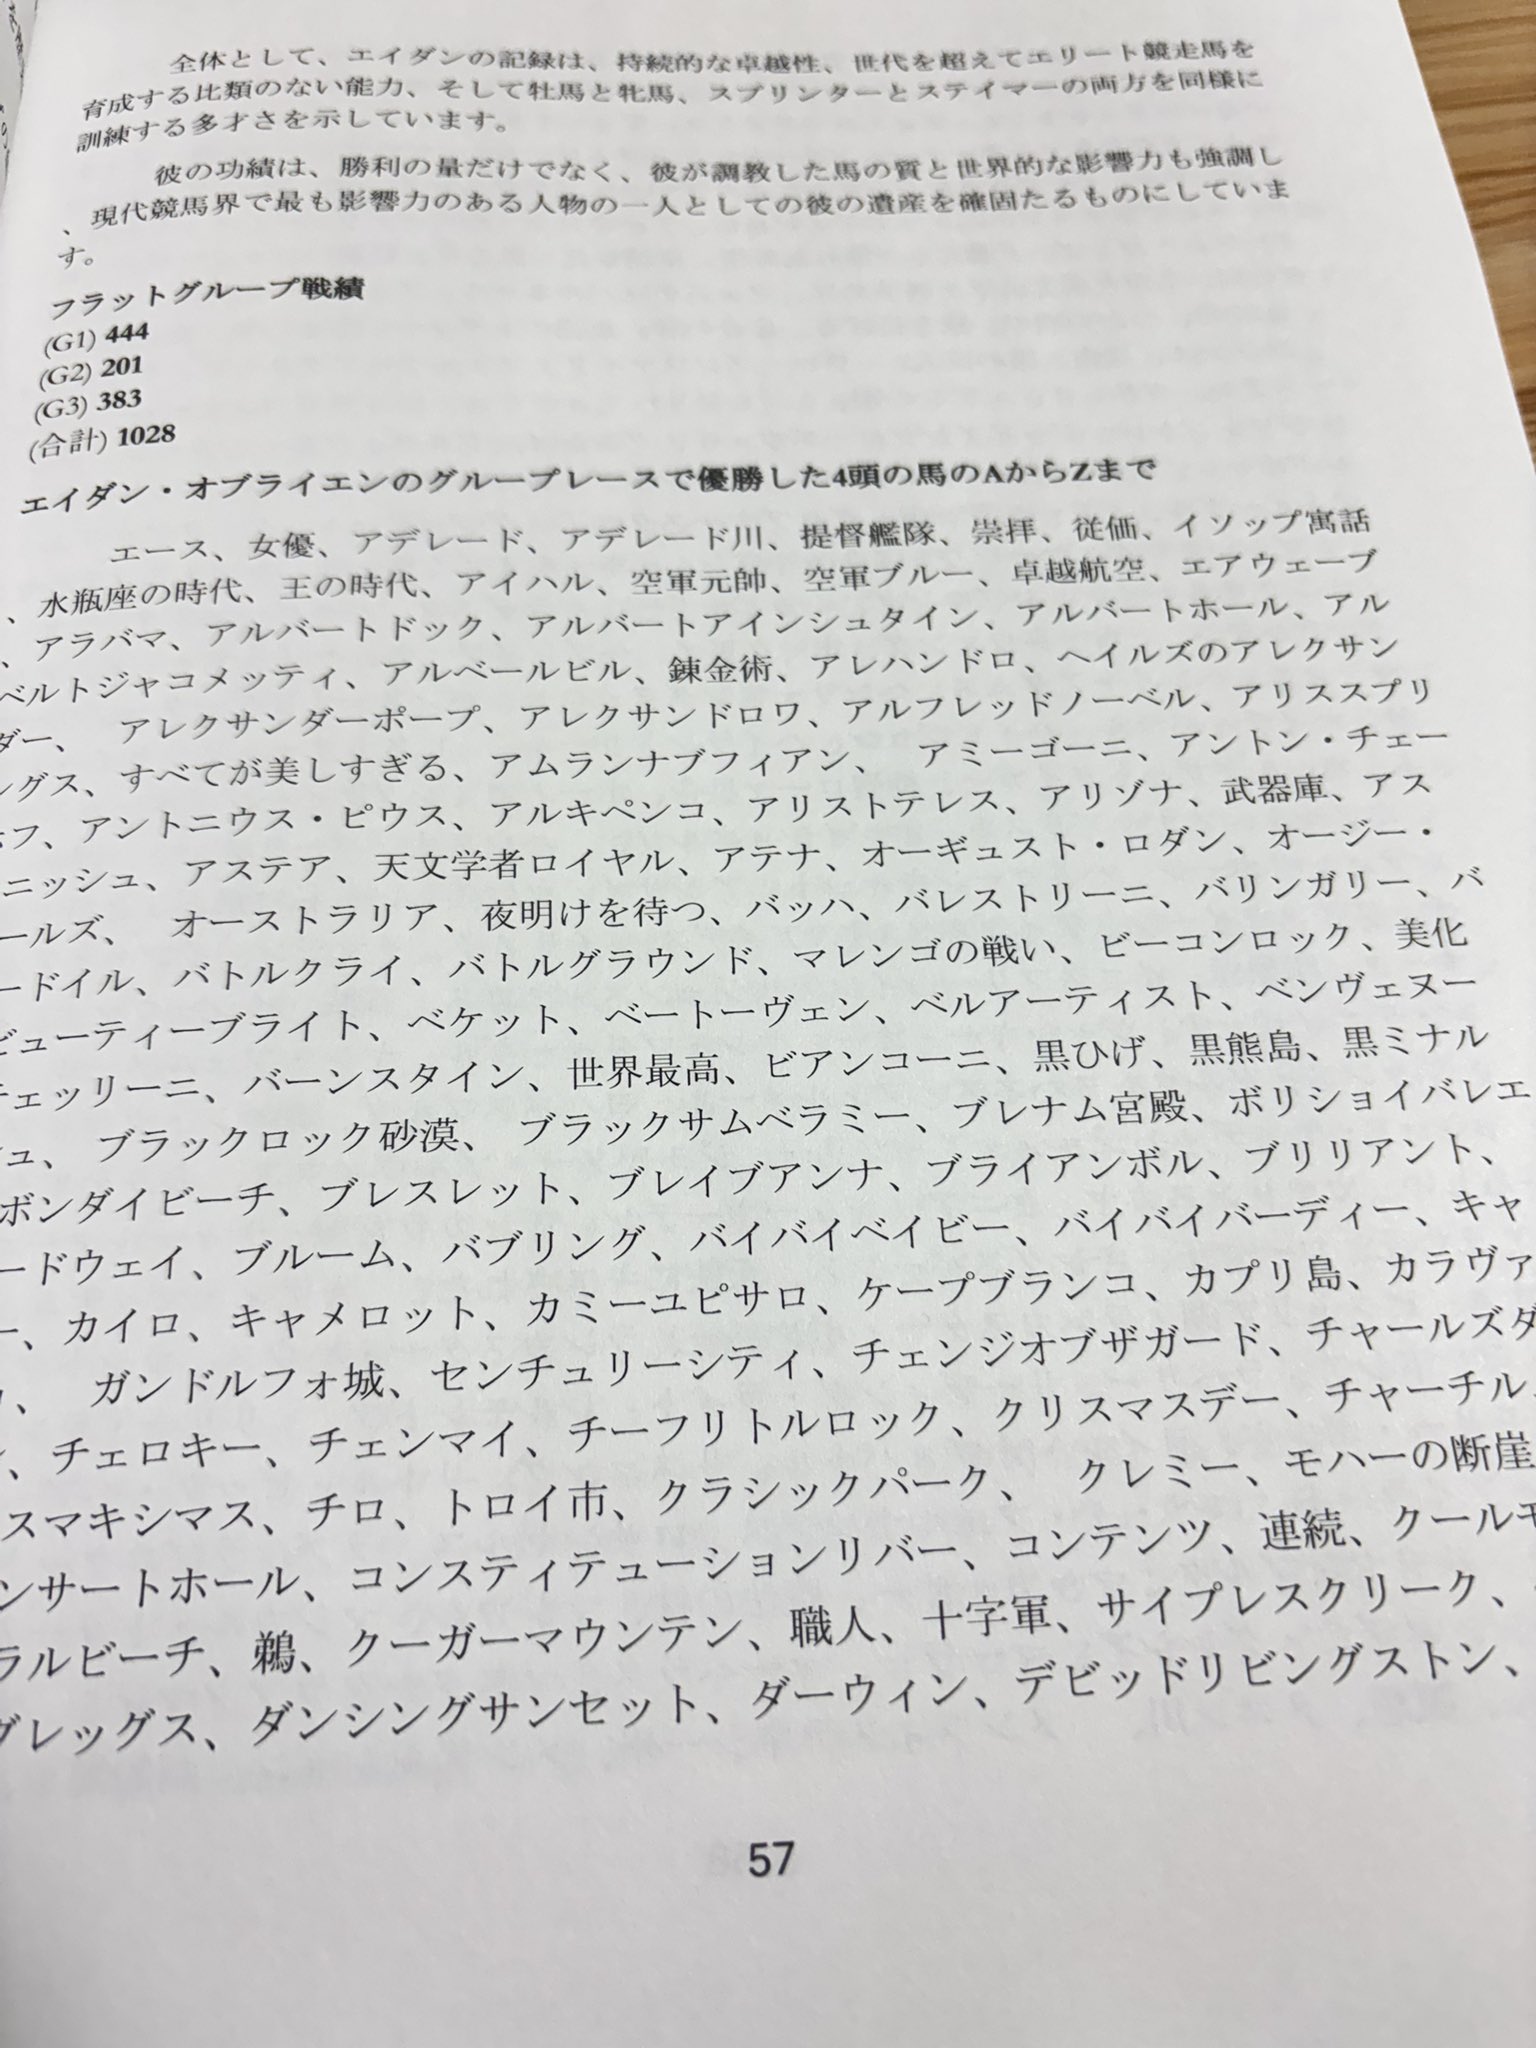 全体として、エイダンの記録は、持続的な卓越性、世代を超えてエリート競走馬を
育成する比類のない能力、そして牡馬と牝馬、スプリンターとステイマーの両方を同様に
訓練する多才さを示しています。
彼の功績は、勝利の量だけでなく、彼が調教した馬の質と世界的な影響力も強調し
、現代競馬界で最も影響力のある人物の一人としての彼の遺産を確固たるものにしていま
す。
フラットグループ戦績
(G1) 444
(G2) 201
(G3) 383
(合計) 1028
エイダン・オブライエンのグループレースで優勝した4頭の馬のAからZまで
エース、女優、アデレード、アデレード川、提督艦隊、崇拝、従価、イソップ寓話
、水瓶座の時代、王の時代、アイハル、空軍元帥、空軍ブルー、卓越航空、エアウェーブ
、アラバマ、アルバートドック、アルバートアインシュタイン、アルバートホール、アル
ベルトジャコメッティ、アルベールビル、錬金術、アレハンドロ、ヘイルズのアレクサン
ダー、 アレクサンダーポープ、アレクサンドロワ、アルフレッドノーベル、アリススプリ
ングス、すべてが美しすぎる、アムランナブフィアン、 アミーゴーニ、アントン・チェー
ホフ、アントニウス・ピウス、アルキペンコ、アリストテレス、アリゾナ、武器庫、アス
ニッシュ、アステア、天文学者ロイヤル、アテナ、オーギュスト・ロダン、オージー・
ールズ、 オーストラリア、夜明けを待つ、バッハ、バレストリーニ、バリンガリー、バ
ードイル、バトルクライ、バトルグラウンド、マレンゴの戦い、ビーコンロック、美化
ビューティーブライト、ベケット、ベートーヴェン、ベルアーティスト、ベンヴェヌー
チェッリーニ、バーンスタイン、世界最高、ビアンコーニ、黒ひげ、黒熊島、黒ミナル
シュ、 ブラックロック砂漠、 ブラックサムベラミー、ブレナム宮殿、ボリショイバレエ
ボンダイビーチ、ブレスレット、ブレイブアンナ、ブライアンボル、ブリリアント、
ードウェイ、ブルーム、バブリング、バイバイベイビー、バイバイバーディー、キャ
ー、カイロ、キャメロット、カミーユピサロ、ケープブランコ、カプリ島、カラヴァ
、 ガンドルフォ城、センチュリーシティ、チェンジオブザガード、チャールズダ
、チェロキー、チェンマイ、チーフリトルロック、クリスマスデー、チャーチル、
スマキシマス、チロ、トロイ市、クラシックパーク、 クレミー、モハーの断崖
ンサートホール、コンスティテューションリバー、コンテンツ、連続、クールモ
ラルビーチ、鵜、クーガーマウンテン、職人、十字軍、サイプレスクリーク、
グレッグス、ダンシングサンセット、ダーウィン、デビッドリビングストン、
57